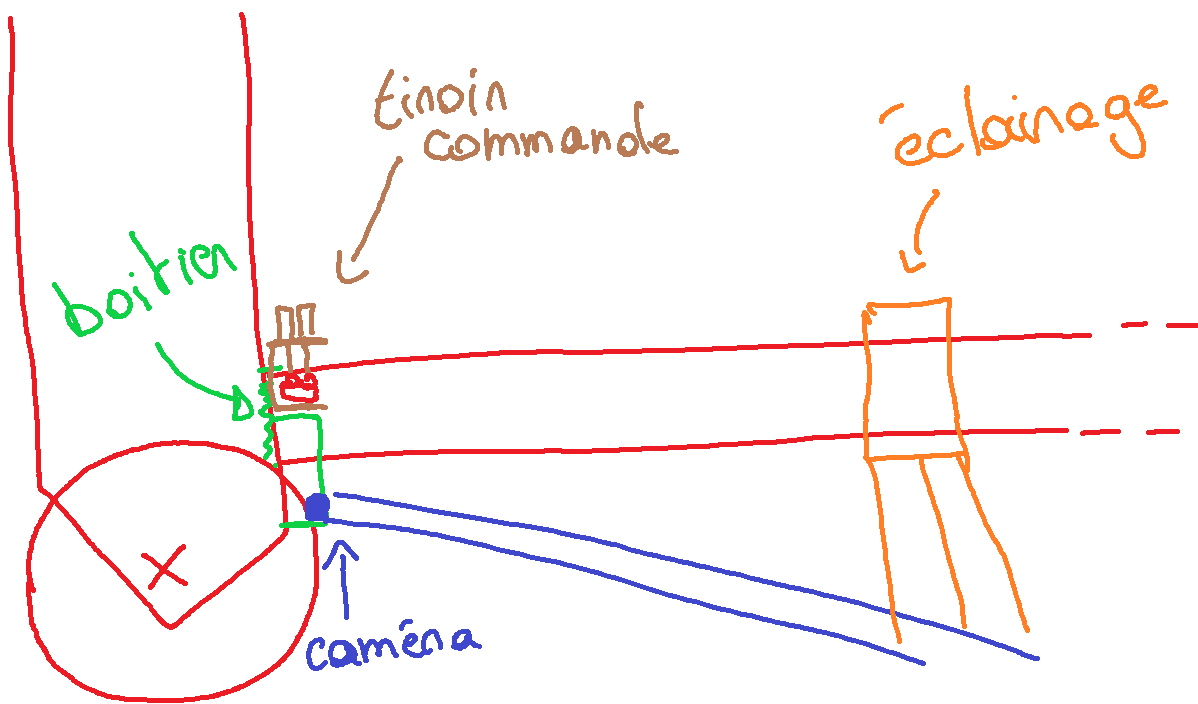 tiroir
commande
éclairage
boitier
caméra